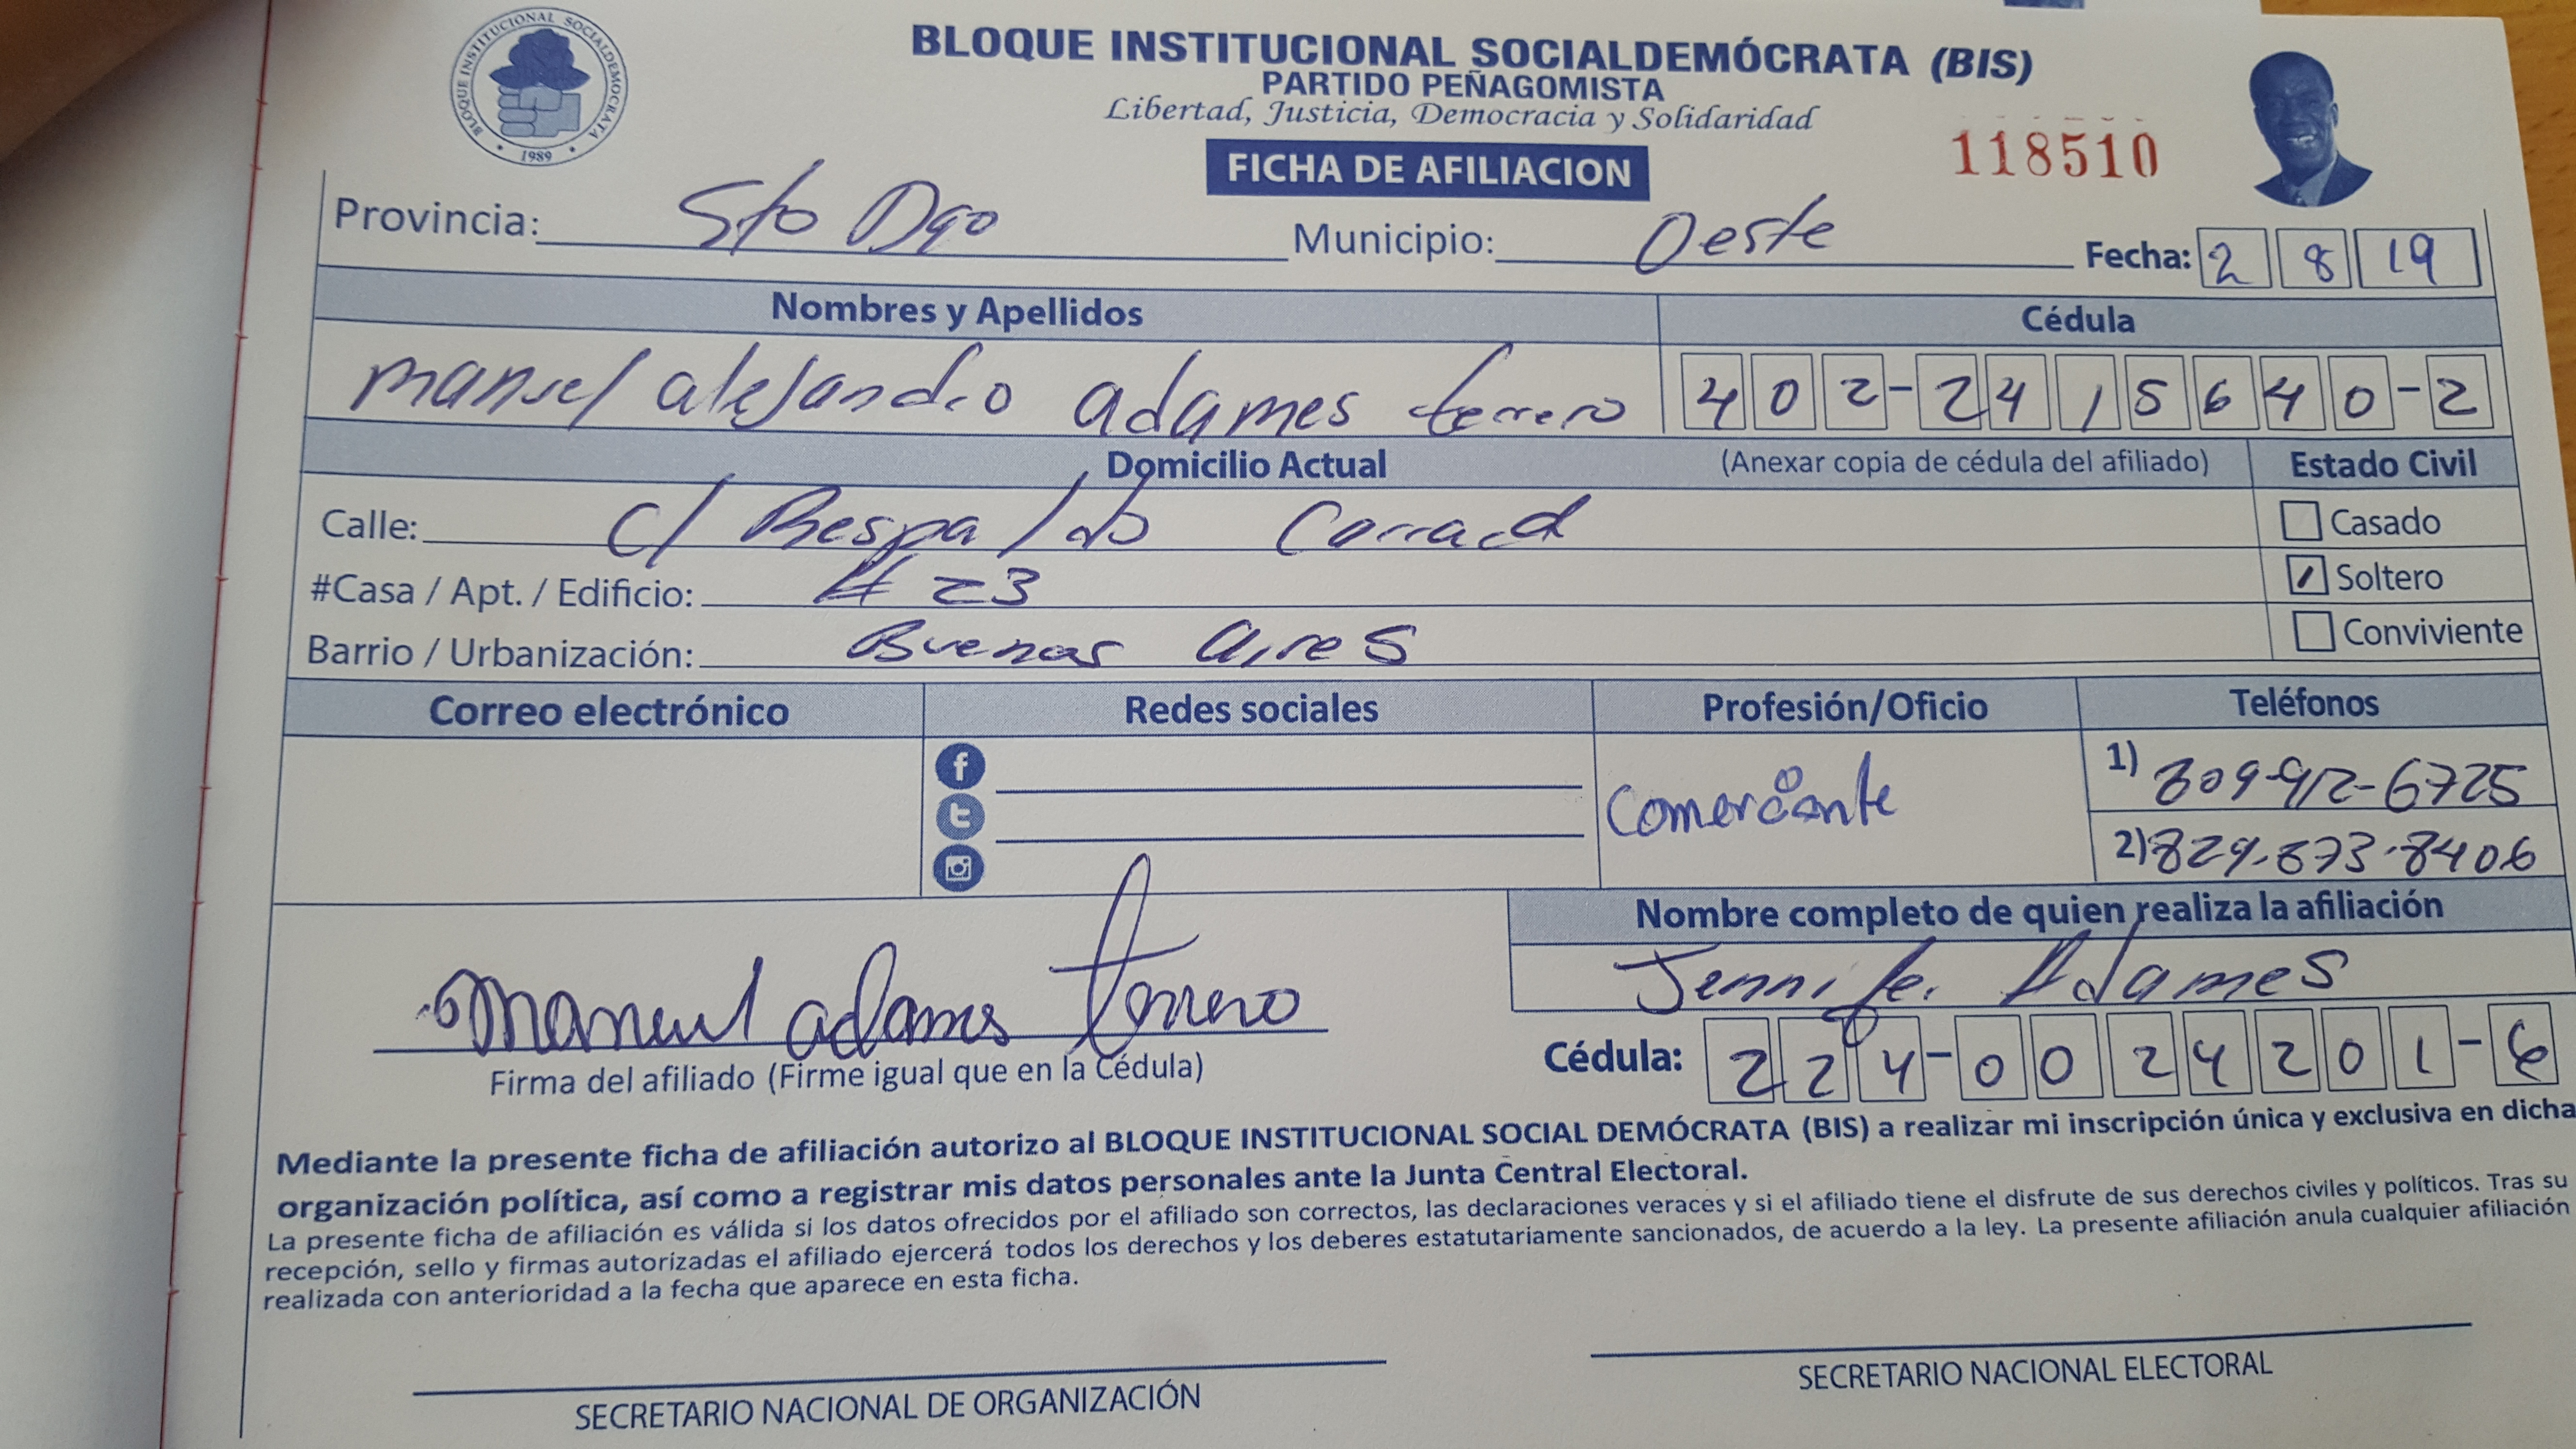 BLOQUE INSTITUCIONAL SOCIALDEMOCRATA
1989
BLOQUE INSTITUCIONAL SOCIALDEMÓCRATA (BIS)
PARTIDO PEÑAGOMISTA
Libertad, Justicia, Democracia y Solidaridad
FICHA DE AFILIACION
118510
Provincia: Sto Dgo Municipio: Oeste Fecha: 2 8 19
Nombres y Apellidos Cédula
manuel alejandro adames terrero 402-2415640-2
Domicilio Actual (Anexar copia de cédula del afiliado) Estado Civil
Calle: c/ Respaldo Casado
#Casa / Apt. / Edificio: # 23 Soltero
Barrio / Urbanización: Buenas Aires Conviviente
Correo electrónico Redes sociales Profesión/Oficio Teléfonos
Comerciante
1) 809-912-6725
2) 829-873-8406
Nombre completo de quien realiza la afiliación
Jennifer Adames
manuel adames terrero
Firma del afiliado (Firme igual que en la Cédula)
Cédula: 224-0024201-6
Mediante la presente ficha de afiliación autorizo al BLOQUE INSTITUCIONAL SOCIAL DEMÓCRATA (BIS) a realizar mi inscripción única y exclusiva en dicha
organización política, así como a registrar mis datos personales ante la Junta Central Electoral.
La presente ficha de afiliación es válida si los datos ofrecidos por el afiliado son correctos, las declaraciones veraces y si el afiliado tiene el disfrute de sus derechos civiles y políticos. Tras su
recepción, sello y firmas autorizadas el afiliado ejercerá todos los derechos y los deberes estatutariamente sancionados, de acuerdo a la ley. La presente afiliación anula cualquier afiliación
realizada con anterioridad a la fecha que aparece en esta ficha.
SECRETARIO NACIONAL DE ORGANIZACIÓN
SECRETARIO NACIONAL ELECTORAL